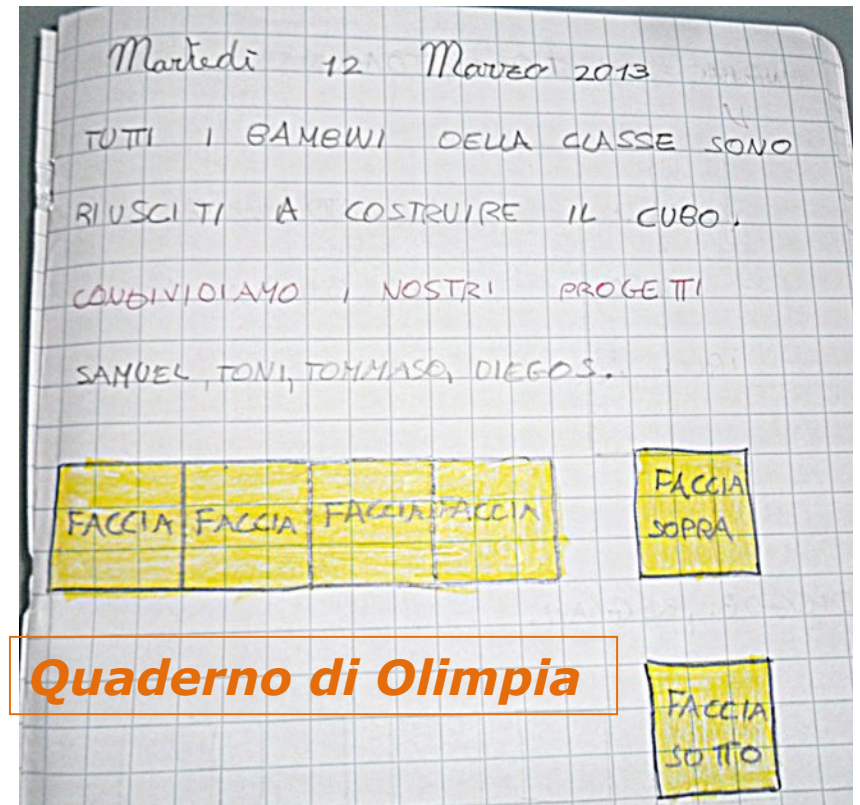 Martedì 12 Marzo 2013
TUTTI I BAMBINI DELLA CLASSE SONO
RIUSCITI A COSTRUIRE IL CUBO.
CONDIVIDIAMO I NOSTRI PROGETTI
SAMUEL, TONI, TOMMASO, DIEGO S.
FACCIA FACCIA FACCIA FACCIA
FACCIA
SOPRA
Quaderno di Olimpia
FACCIA
SOTTO